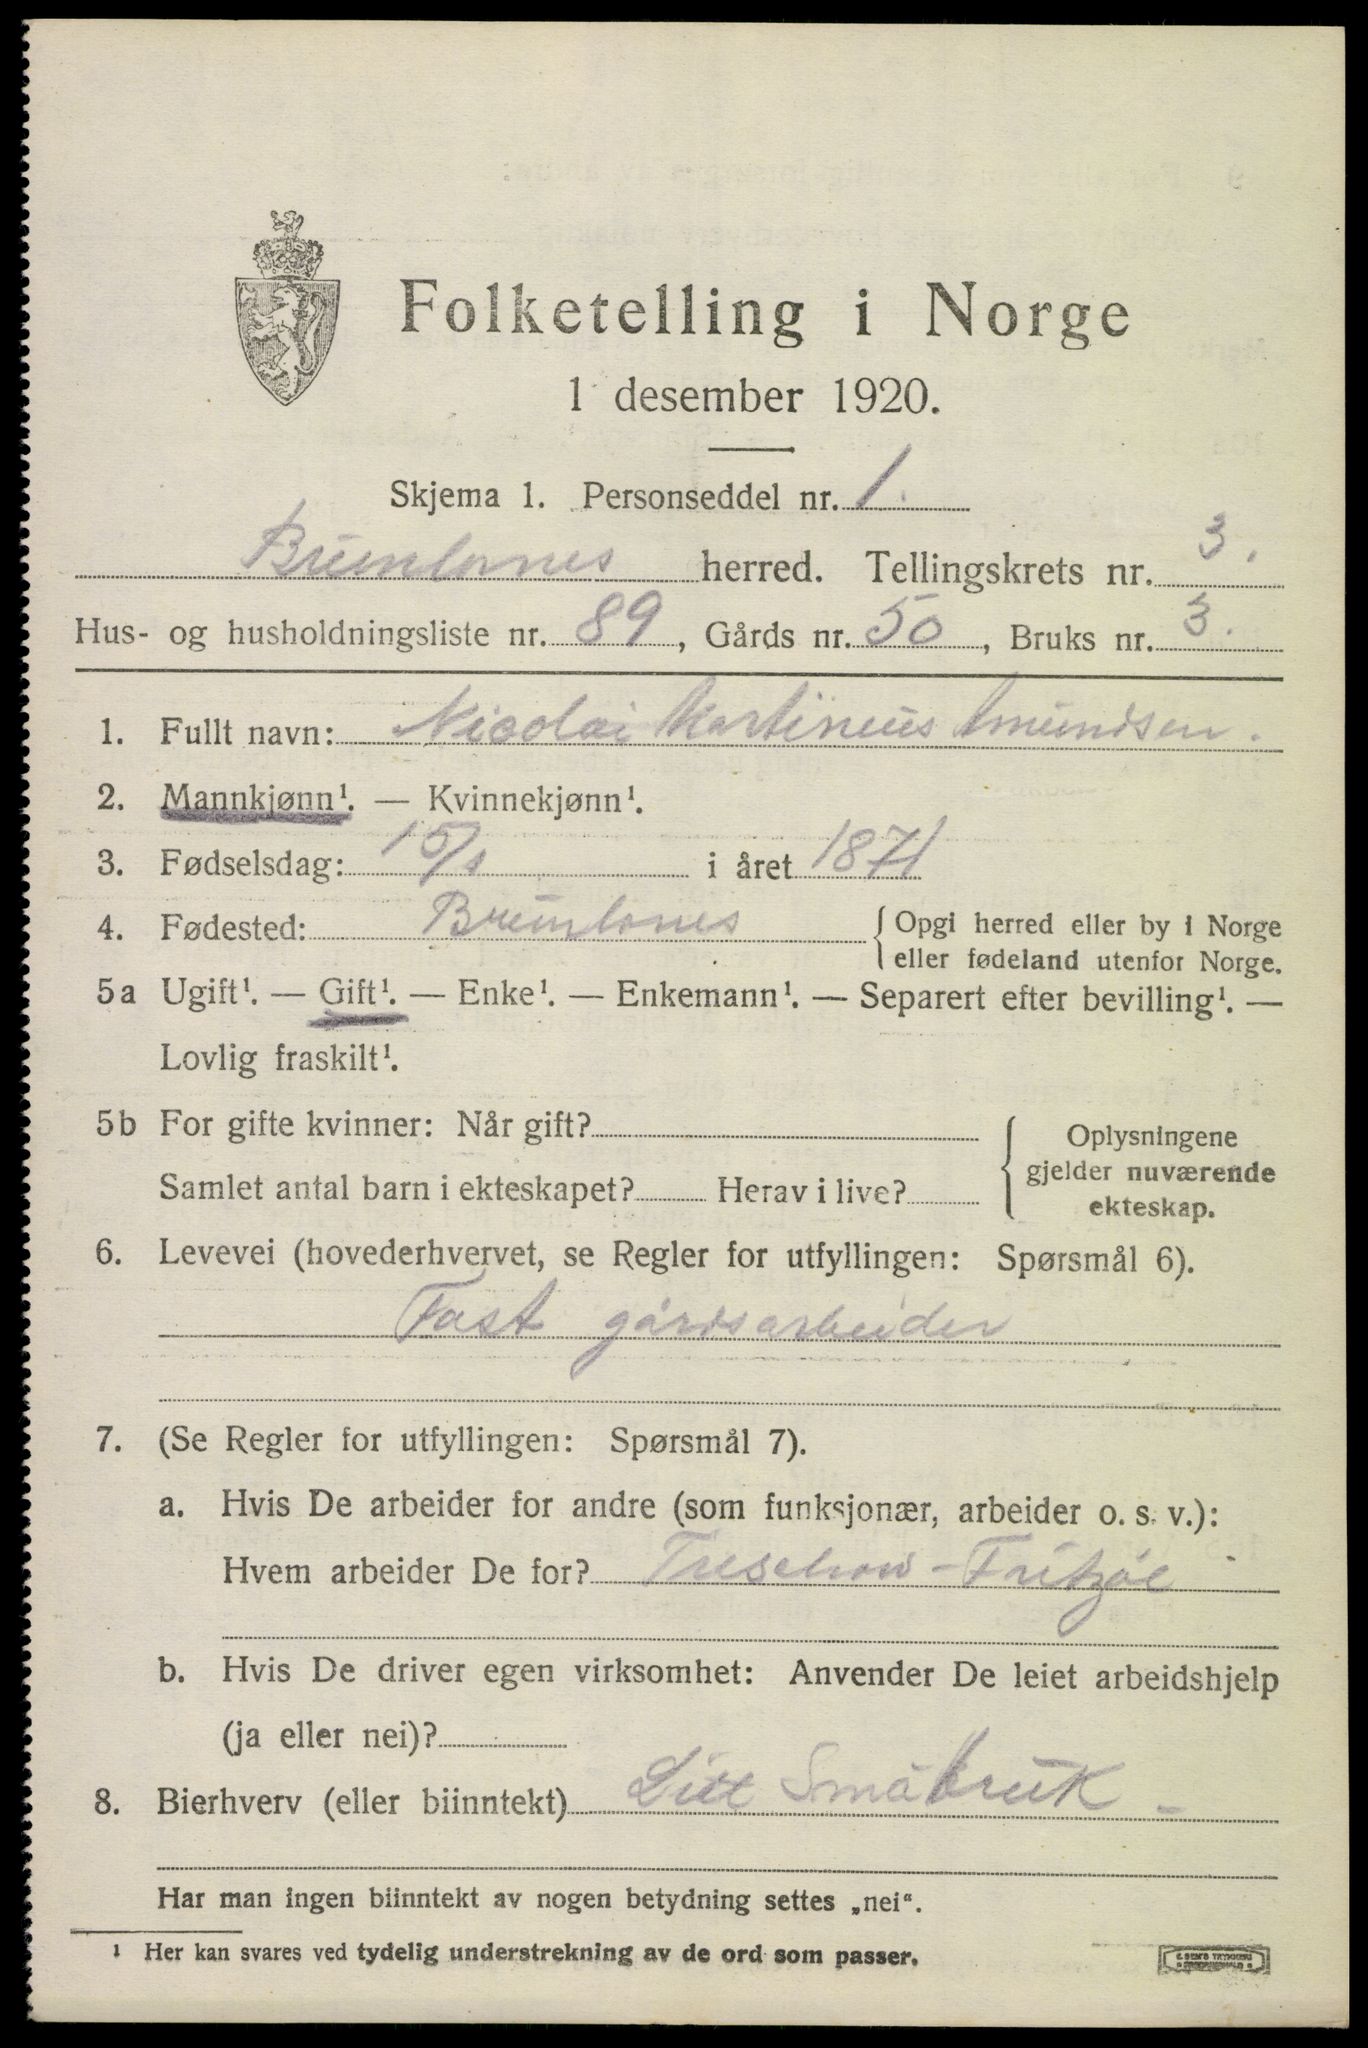 Folketelling i Norge
1 desember 1920.
Skjema 1. Personseddel nr. 1.
Brunlanes herred. Tellingskrets nr. 3.
Hus- og husholdningsliste nr. 89, Gårds nr. 50, Bruks nr. 3.
1. Fullt navn: Nicolai Martineus Amundsen.
2. Mannkjønn¹. — Kvinnekjønn¹.
3. Fødselsdag: 15/1 i året 1871
4. Fødested: Brunlanes { Opgi herred eller by i Norge
eller fødeland utenfor Norge.
5a Ugift¹. — Gift¹. — Enke¹. — Enkemann¹. — Separert efter bevilling¹. —
Lovlig fraskilt¹.
5b For gifte kvinner: Når gift? { Oplysningene
gjelder nuværende
Samlet antal barn i ekteskapet? Herav i live?
ekteskap.
6. Levevei (hovederhvervet, se Regler for utfyllingen: Spørsmål 6).
Fast gårdsarbeider
7. (Se Regler for utfyllingen: Spørsmål 7).
a. Hvis De arbeider for andre (som funksjonær, arbeider o. s. v.):
Hvem arbeider De for? Treschow-Fritzøe
b. Hvis De driver egen virksomhet: Anvender De leiet arbeidshjelp
(ja eller nei)?
8. Bierhverv (eller biinntekt) Litt Småbruk -
Har man ingen biinntekt av nogen betydning settes „nei“.
¹ Her kan svares ved tydelig understrekning av de ord som passer.